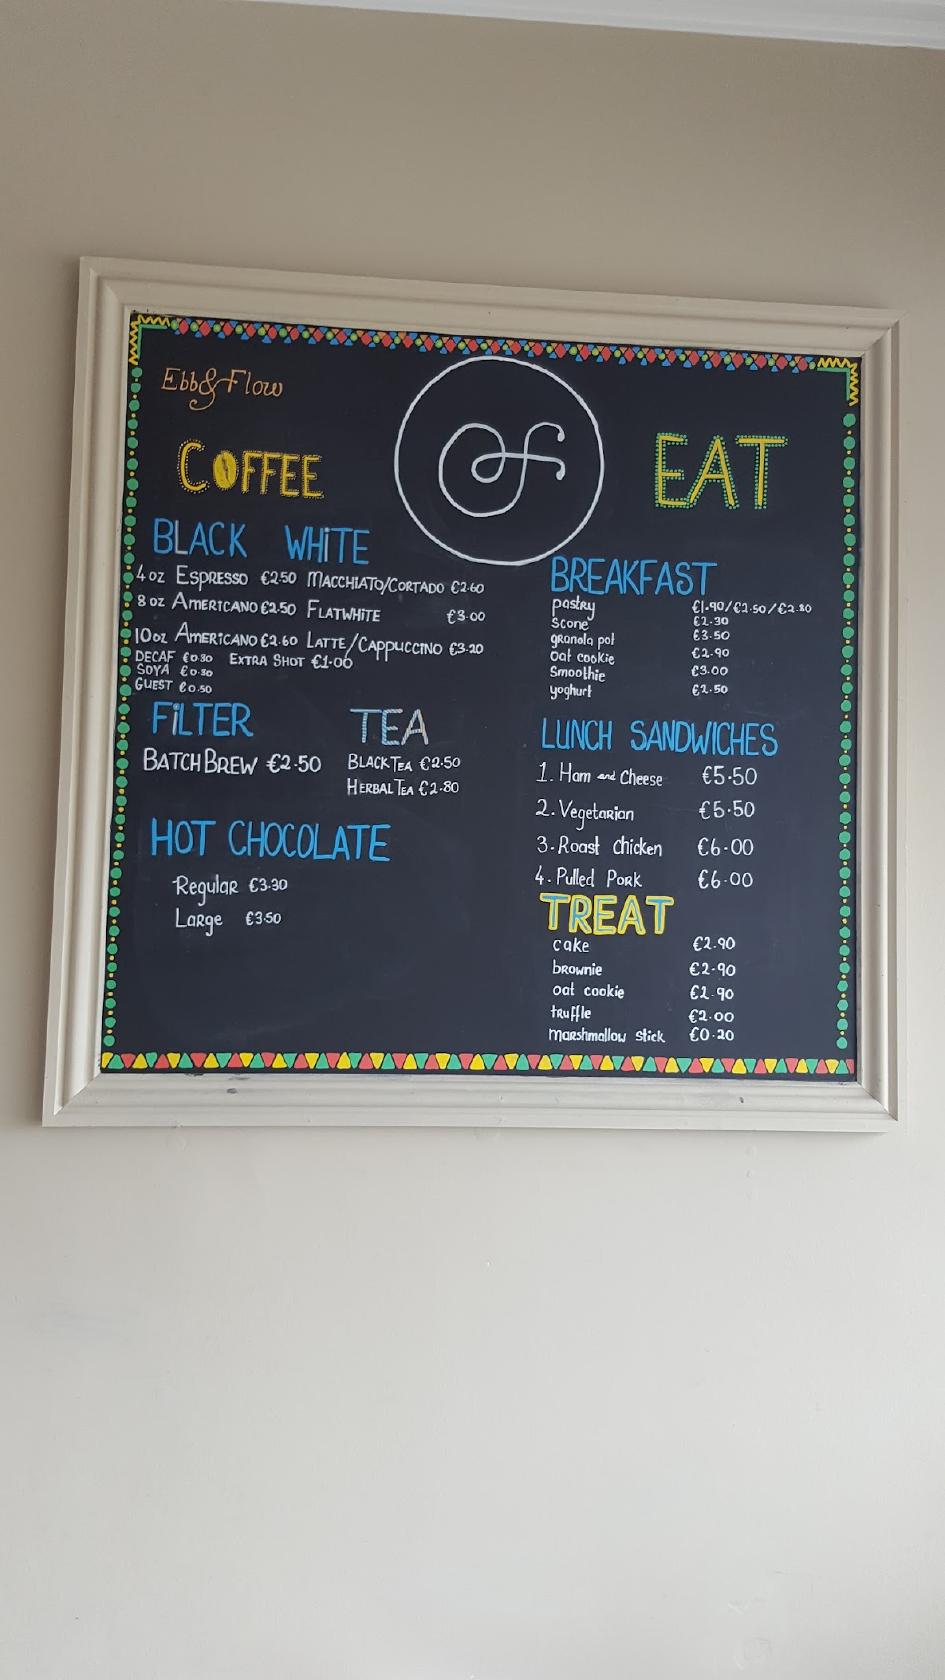 Ebb&Flow
COFFEE
BLACK WHiTE
4oz ESPRESSO €2.50 MACCHIATO/CORTADO €2.60
8oz AMERICANO €2.50 FLATWHITE €3.00
10oz AMERICANO €2.60 LATTE/CAPPUCCINO €3.20
DECAF €0.30 EXTRA SHOT €1.00
SOYA €0.30
GUEST €0.50
FiLTER
BATCH BREW €2.50
TEA
BLACK TEA €2.50
HERBAL TEA €2.80
HOT CHOCOLATE
Regular €3.30
Large €3.50
ef
EAT
BREAKFAST
pastry €1.90/€2.50/€2.80
Scone €2.30
granola pot €3.50
Oat cookie €2.90
Smoothie €3.00
yoghurt €2.50
LUNCH SANDWICHES
1. Ham and Cheese €5.50
2. Vegetarian €5.50
3. Roast chicken €6.00
4. Pulled Pork €6.00
TREAT
cake €2.90
brownie €2.90
oat cookie €2.90
truffle €2.00
marshmallow stick €0.20